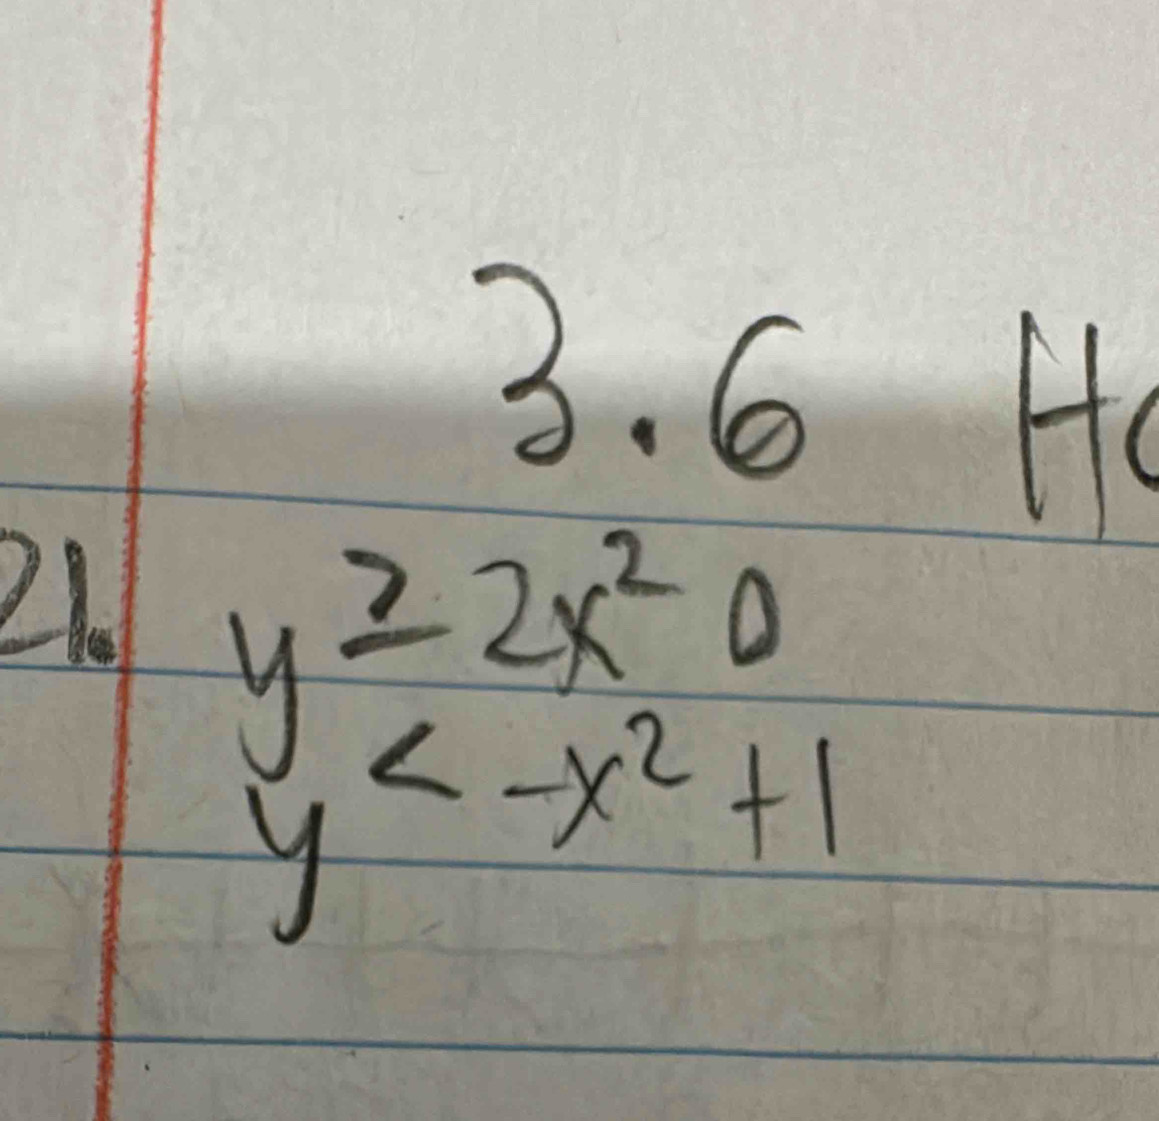 3.6 H
21. y ≥ 2x² 0
y < -x² + 1